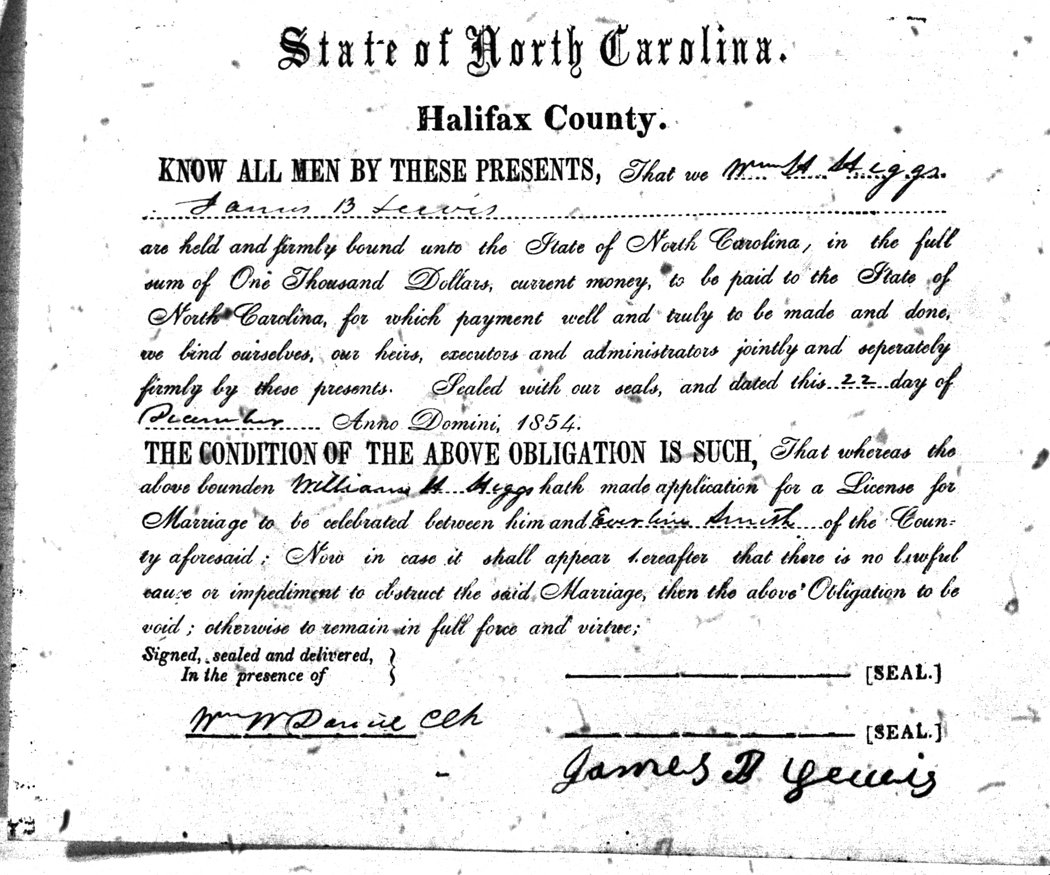 State of North Carolina.
Halifax County.
KNOW ALL MEN BY THESE PRESENTS, That we Wm H Higgs.
James B Lewis
are held and firmly bound unto the State of North Carolina, in the full
sum of One Thousand Dollars, current money, to be paid to the State of
North Carolina, for which payment well and truly to be made and done,
we bind ourselves, our heirs, executors and administrators jointly and seperately
firmly by these presents. Sealed with our seals, and dated this 22 day of
December Anno Domini, 1854.
THE CONDITION OF THE ABOVE OBLIGATION IS SUCH, That whereas the
above bounden William H Higgs hath made application for a License for
Marriage to be celebrated between him and Everline Smith of the Coun-
ty aforesaid; Now in case it shall appear hereafter that there is no lawful
cause or impediment to obstruct the said Marriage, then the above Obligation to be
void; otherwise to remain in full force and virtue;
Signed, sealed and delivered,
In the presence of
[SEAL.]
Wm W Daniel Clk
[SEAL.]
James B Lewis